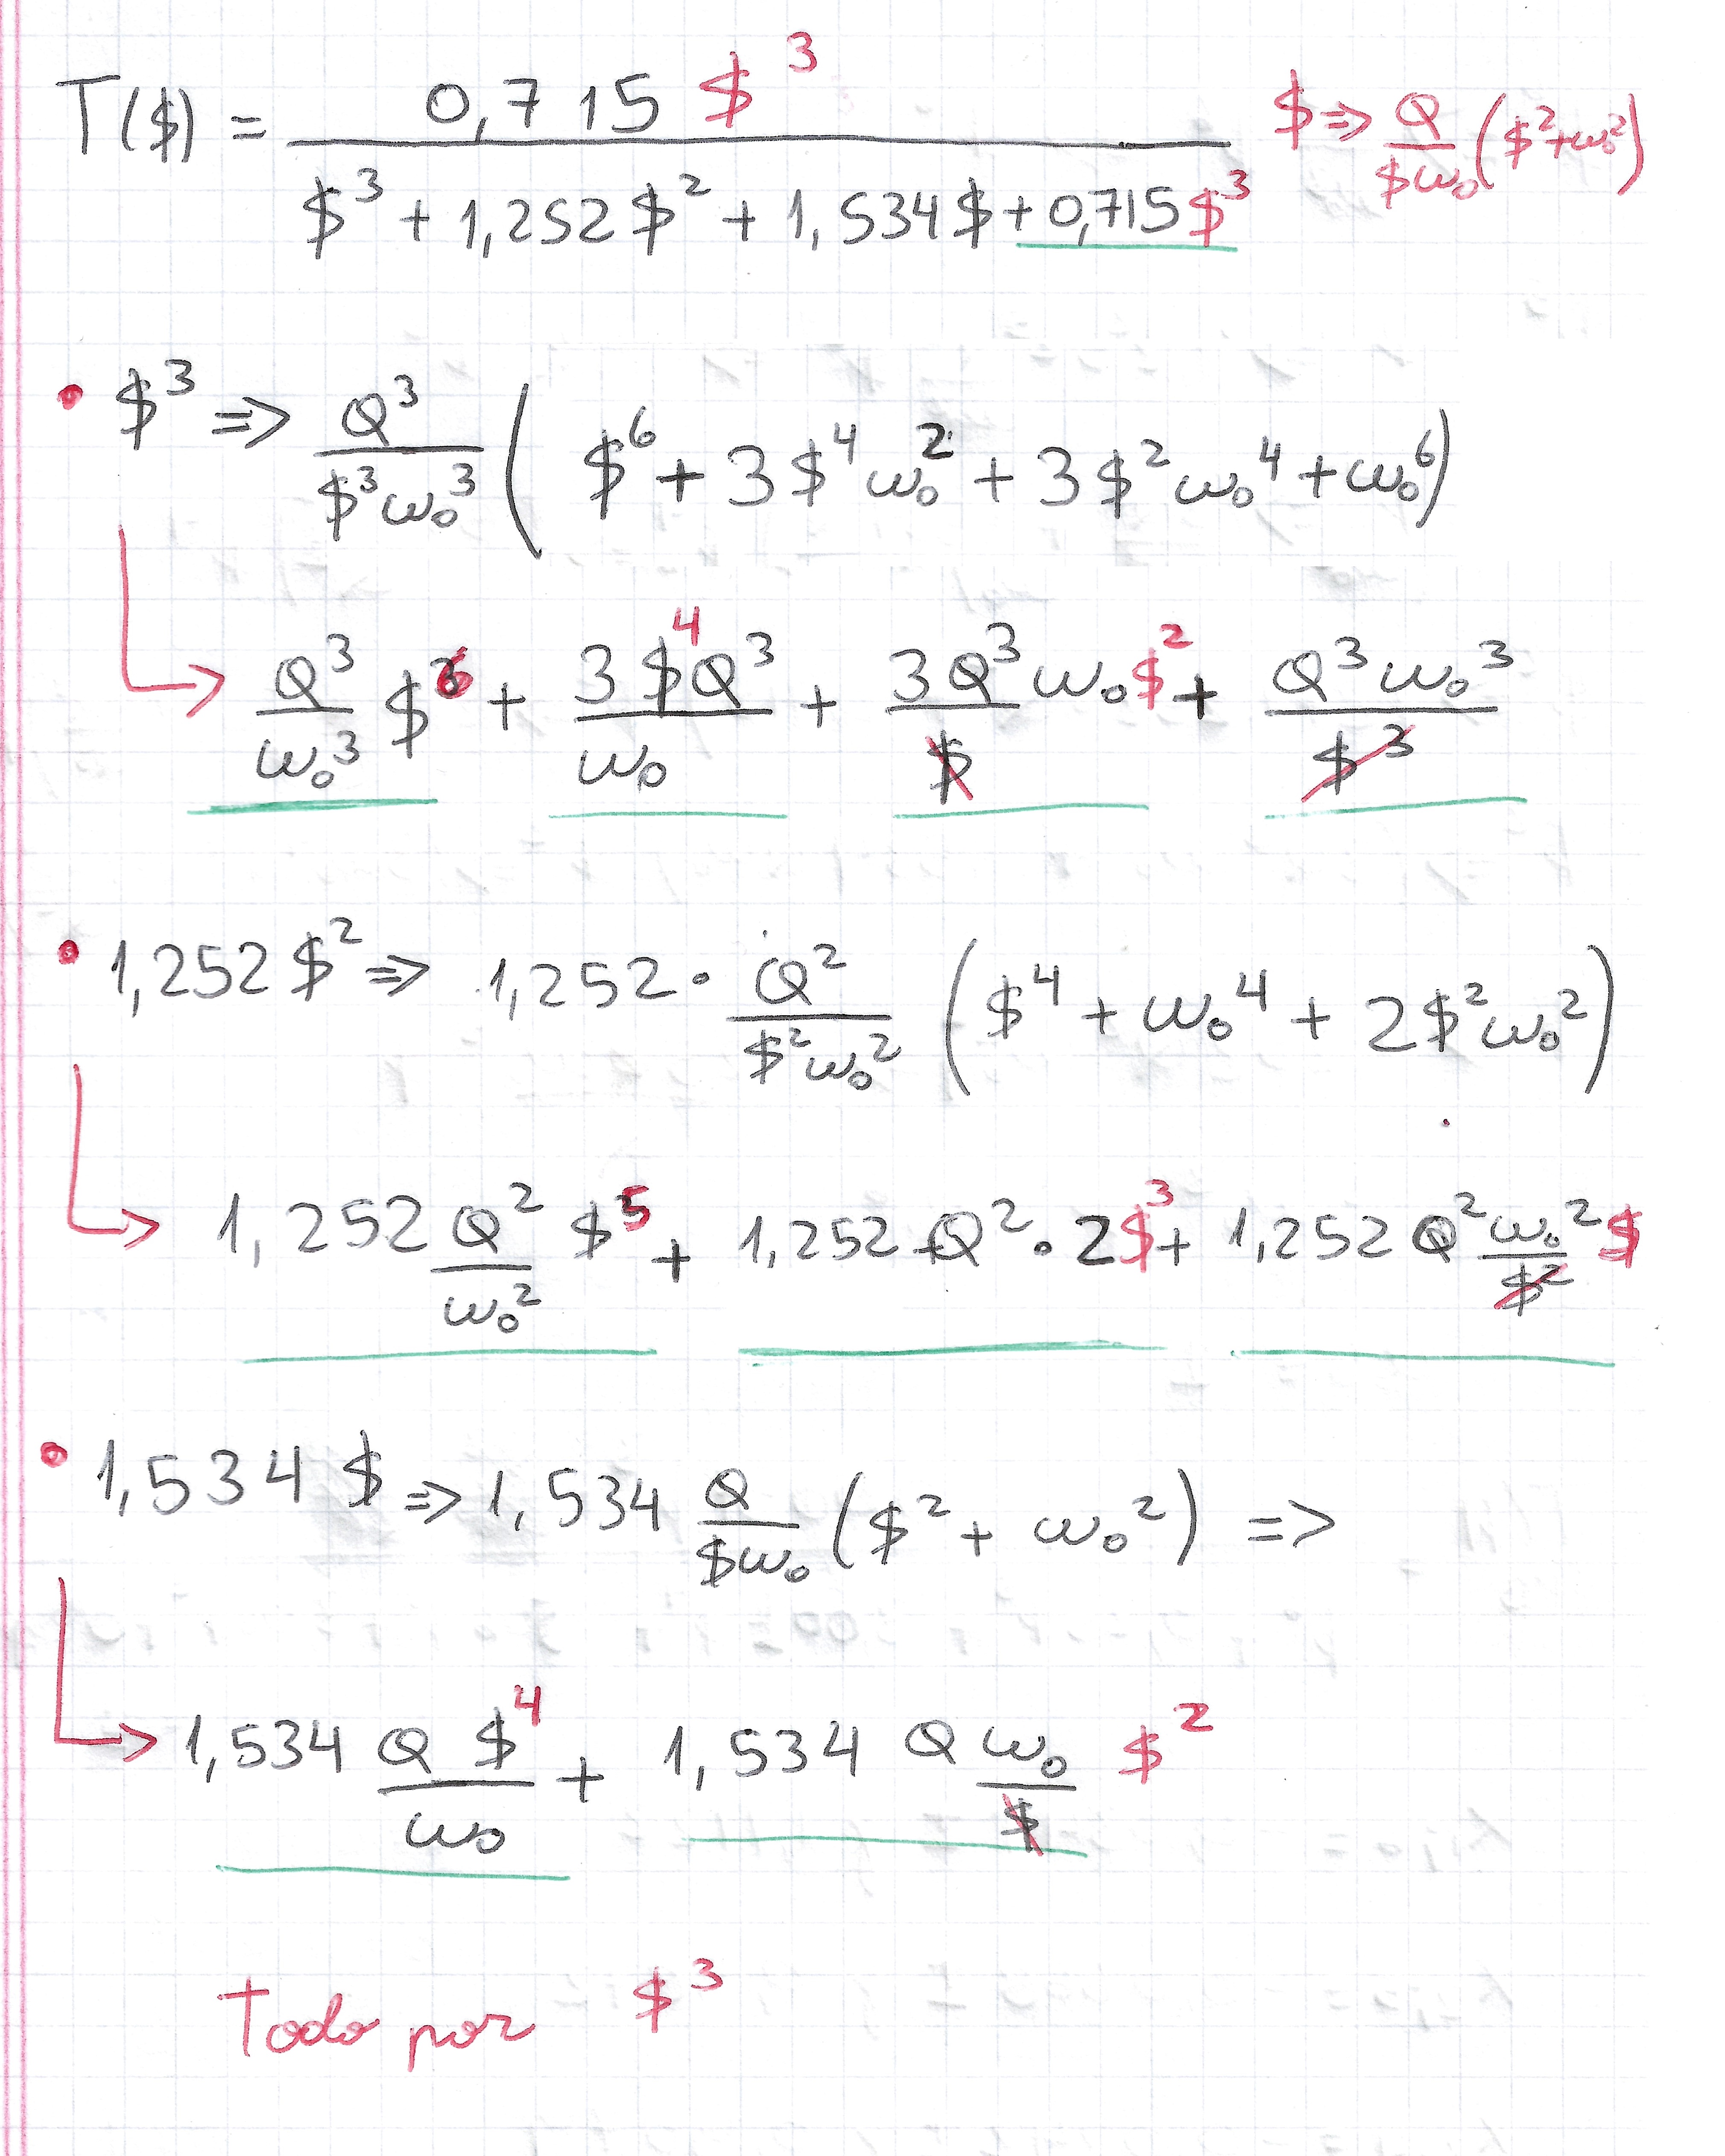 T($) = 0,715 $³ / ($³ + 1,252 $² + 1,534 $ + 0,715 $³)   $ => Q/($ω₀) ($²+ω₀²)
• $³ => Q³/($³ω₀³) ( $⁶ + 3 $⁴ ω₀² + 3 $² ω₀⁴ + ω₀⁶ )
Q³/ω₀³ $⁶ + 3 $⁴ Q³/ω₀ + 3 Q³/$ ω₀ $² + Q³ ω₀³/$³
• 1,252 $² => 1,252 · Q²/($²ω₀²) ( $⁴ + ω₀⁴ + 2 $² ω₀² )
1,252 Q²/ω₀² $⁵ + 1,252 Q² · 2 $³ + 1,252 Q² ω₀²/$² $
• 1,534 $ => 1,534 Q/($ω₀) ( $² + ω₀² ) =>
1,534 Q $⁴/ω₀ + 1,534 Q ω₀/$ $²
Todo por $³